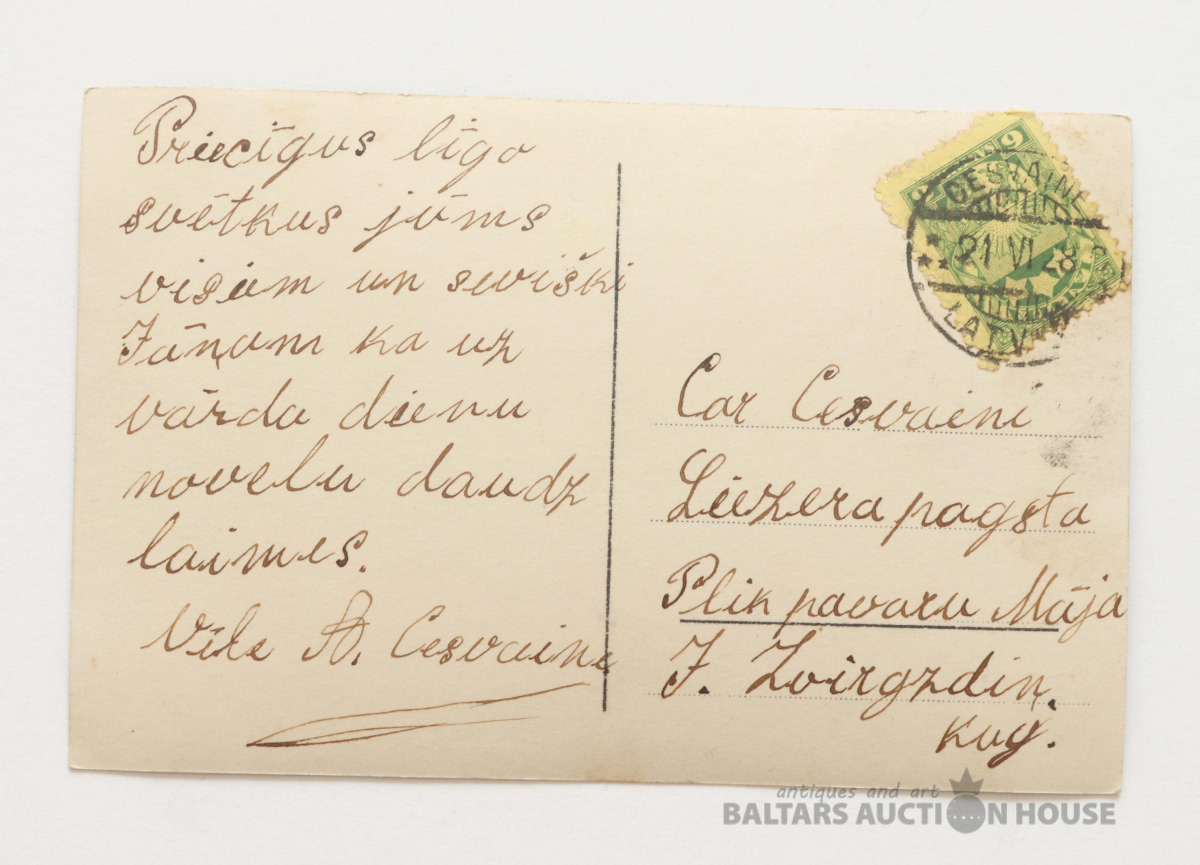 Priecīgus līgo
svētkus jums
visiem un sevišķi
Jāņam ka uz
vārda dienu
novelu daudz
laimes.
Vēle A. Cesvaine
6
CESVAINE
21 VI 28
LATV
Car Cesvaini
Liezera pagsta
Plik pavaru Māja
J. Zvirgzdiņ.
kug.
antiques and art
BALTARS AUCTION HOUSE